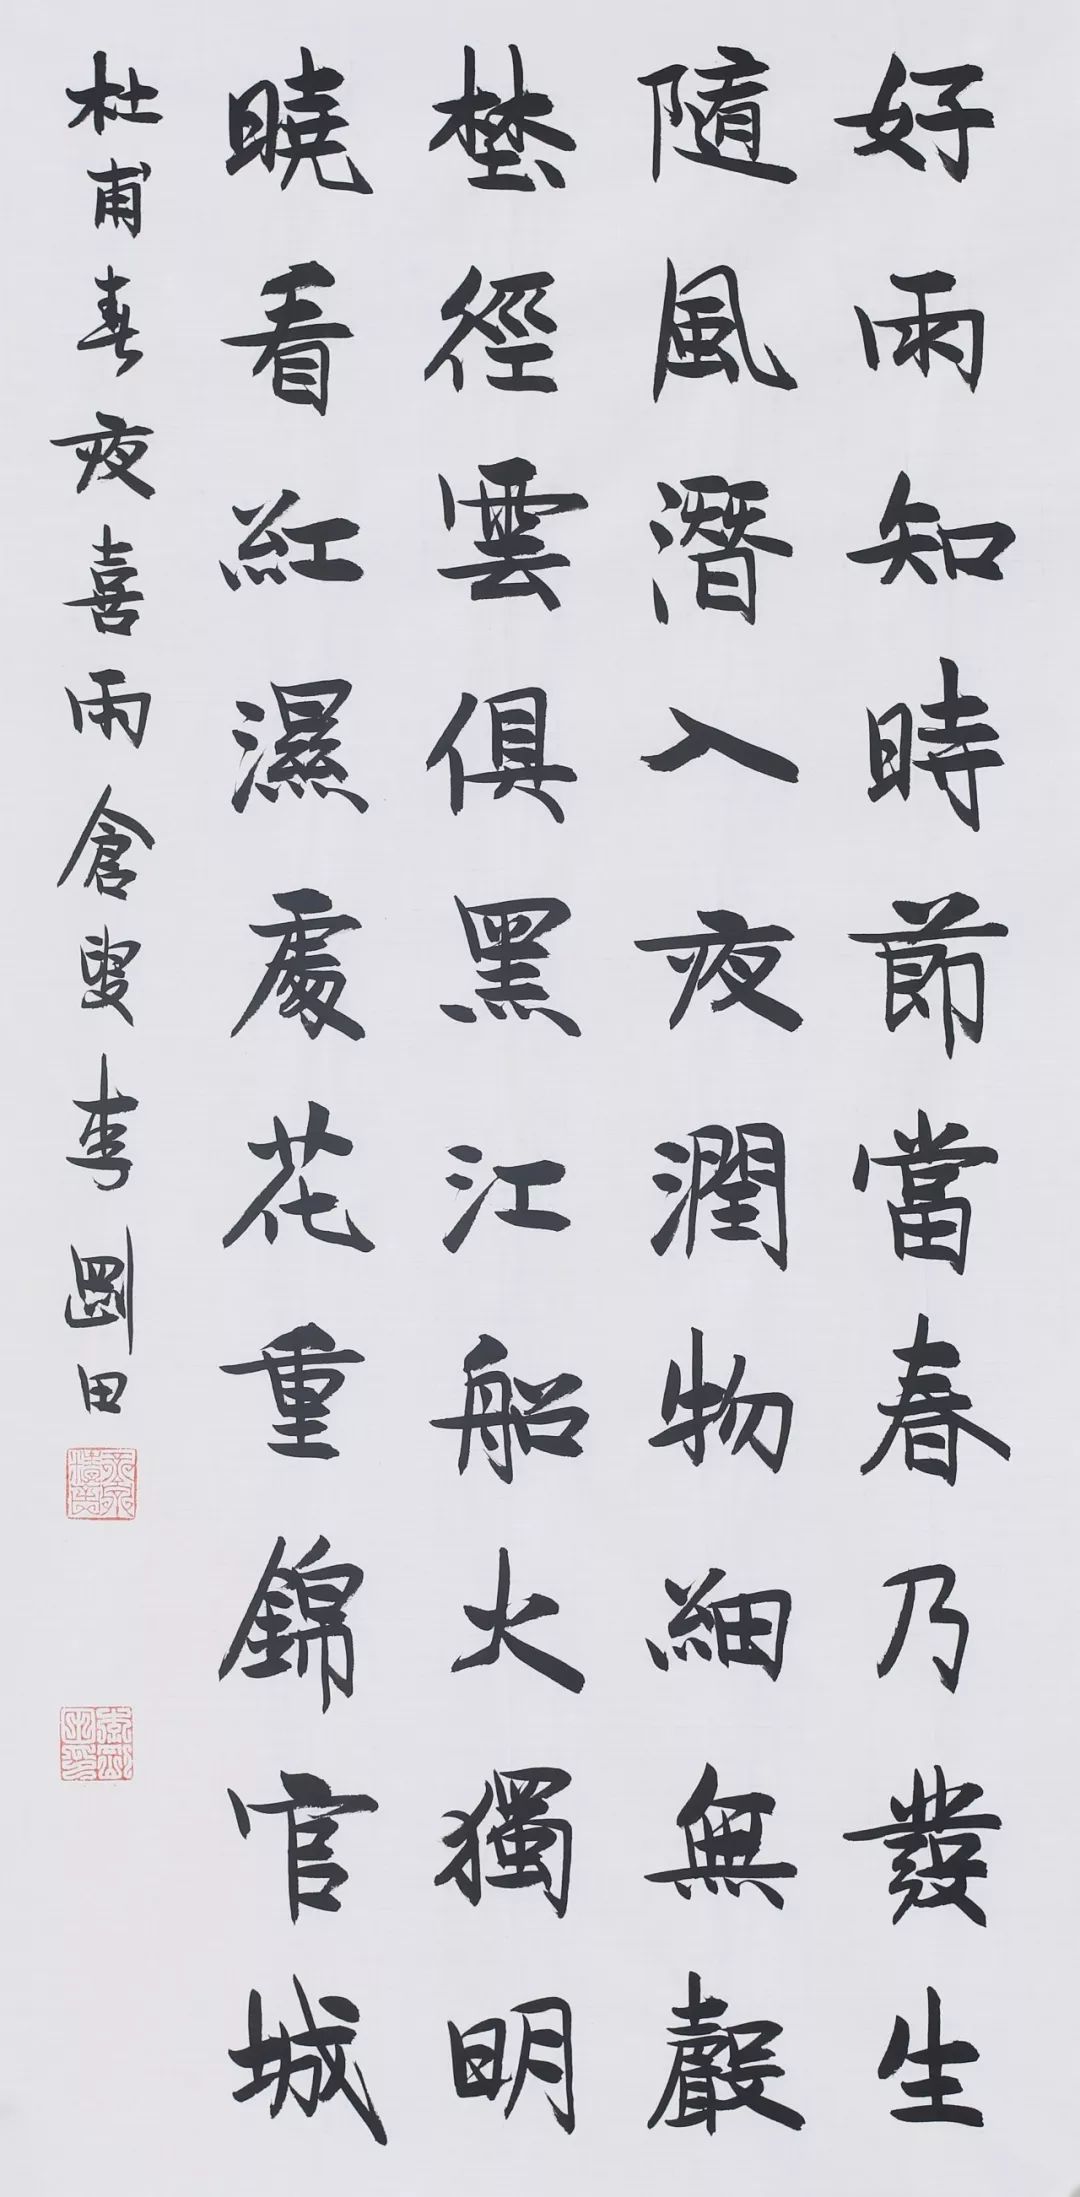 好雨知時節當春乃發生
隨風潛入夜潤物細無聲
埜徑雲俱黑江船火獨明
曉看紅濕處花重錦官城
杜甫春夜喜雨倉叟李剛田